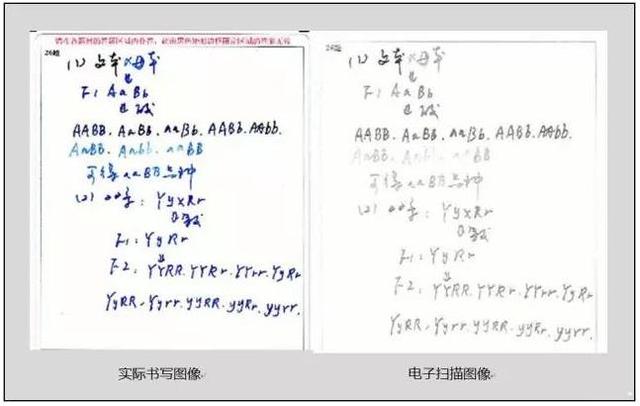 请在各题目的答题区域内作答，超出黑色矩形边框限定区域的答案无效
26题
(1) 父本×母本
↓
F1 AaBb
AABB. AaBb. aaBb. AABb. AAbb.
AaBB. Aabb. aaBB
可得 aaBB品种
(2) 亲: YyxRr
F1: YyRr
↓
F2: YYRR. YYRr. YYrr. YyRr
YyRR. Yyrr. yyRR. yyRr. yyrr.
26题
(1) 父本×母本
↓
F1 AaBb
AABB. AaBb. aaBb. AABb. AAbb.
AaBB. Aabb. aaBB
可得 aaBB品种
(2) 亲: YyxRr
F1: YyRr
↓
F2: YYRR. YYRr. YYrr. YyRr
YyRR. Yyrr. yyRR. yyRr. yyrr.
实际书写图像
电子扫描图像